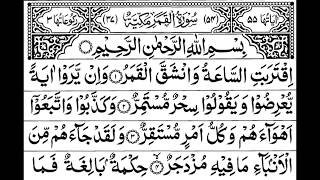 اٰیَاتُهَا ٥٥ (٥٤) سُوْرَةُ الْقَمَرِ مَكِّيَّةٌ (٣٧) رُكُوْعَاتُهَا ٣
بِسْمِ اللّٰهِ الرَّحْمٰنِ الرَّحِيْمِ
اِقْتَرَبَتِ السَّاعَةُ وَانْشَقَّ الْقَمَرُ ۝١ وَاِنْ يَّرَوْا اٰيَةً
يُّعْرِضُوْا وَيَقُوْلُوْا سِحْرٌ مُّسْتَمِرٌّ ۝٢ وَكَذَّبُوْا وَاتَّبَعُوْٓا
اَهْوَآءَهُمْ وَكُلُّ اَمْرٍ مُّسْتَقِرٌّ ۝٣ وَلَقَدْ جَآءَهُمْ مِّنَ
الْاَنْۢبَآءِ مَا فِيْهِ مُزْدَجَرٌ ۝٤ حِكْمَةٌۢ بَالِغَةٌ فَمَا